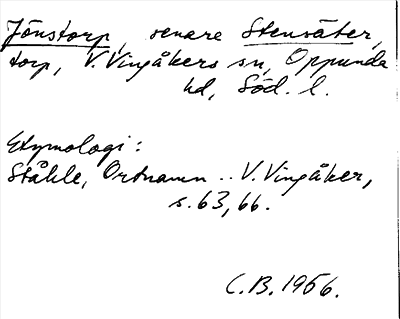 Jönstorp, senare Stensäter,
torp, V. Vingåkers sn, Oppunda
hd, Söd. l.
Etymologi:
Ståhle, Ortnamn .. V. Vingåker,
s. 63, 66.
C.B. 1956.